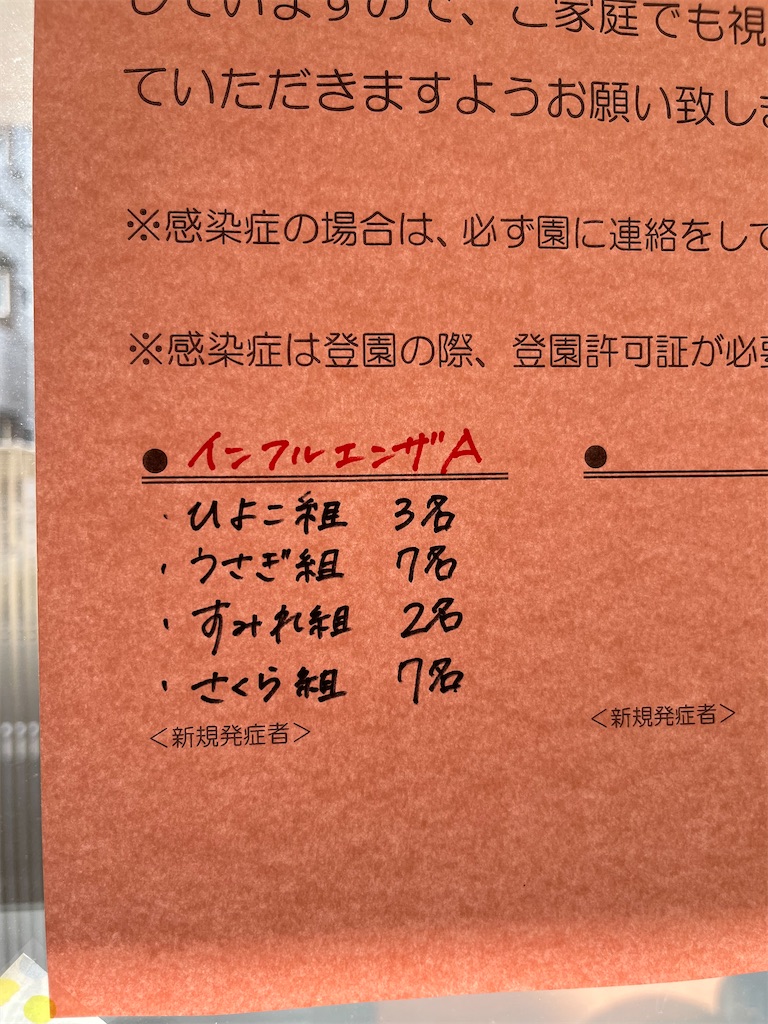 していますので、ご家庭でも視
ていただきますようお願い致しま
※感染症の場合は、必ず園に連絡をして
※感染症は登園の際、登園許可証が必要
● インフルエンザA
●
・ひよこ組 3名
・うさぎ組 7名
・すみれ組 2名
・さくら組 7名
＜新規発症者＞
＜新規発症者＞